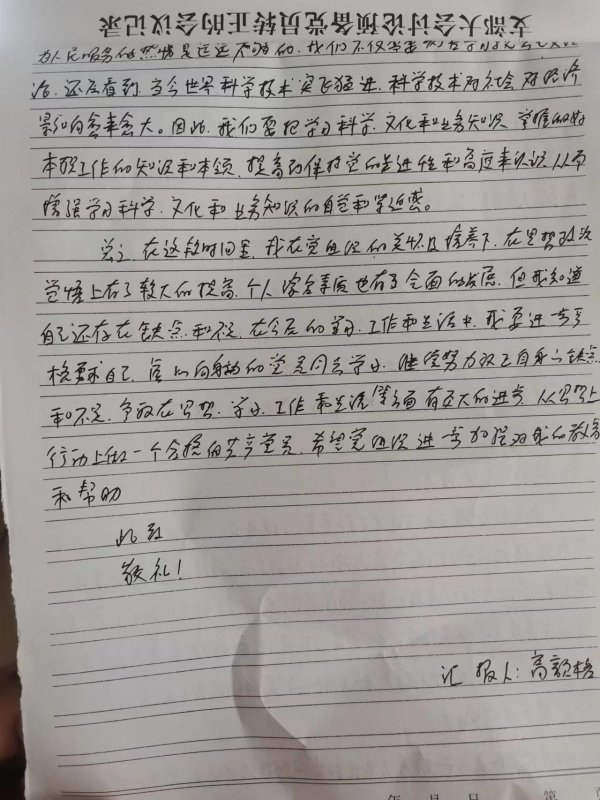 支部大会讨论预备党员转正的会议记录
为人民服务的热情是远远不够的，我们不仅需要
治，还应看到，当今世界科学技术突飞猛进，科学技术对社会对经济
影响会来会大。因此，我们要把学习科学、文化和业务知识，掌握做好
本职工作的知识和本领，提高到保持党的先进性和高度来认识从而
增强学习科学、文化和业务知识的自觉和紧迫感。
总之，在这段时间里，我在党组织的关怀及培养下，在思想政治
觉悟上有了较大的提高，个人综合素质也有了全面的发展，但我知道
自己还存在缺点和不足，在今后的学习、工作和生活中，我要进一步严
格要求自己，虚心向身边的党员同志学习，继续努力改正自身的缺点
和不足，争取在思想、学习、工作和生活等方面有更大的进步，从思想上
行动上做一个合格的共产党员，希望党组织进一步加强对我的教育
和帮助
此致
敬礼！
汇报人：高毅格
年 月 日 第 页